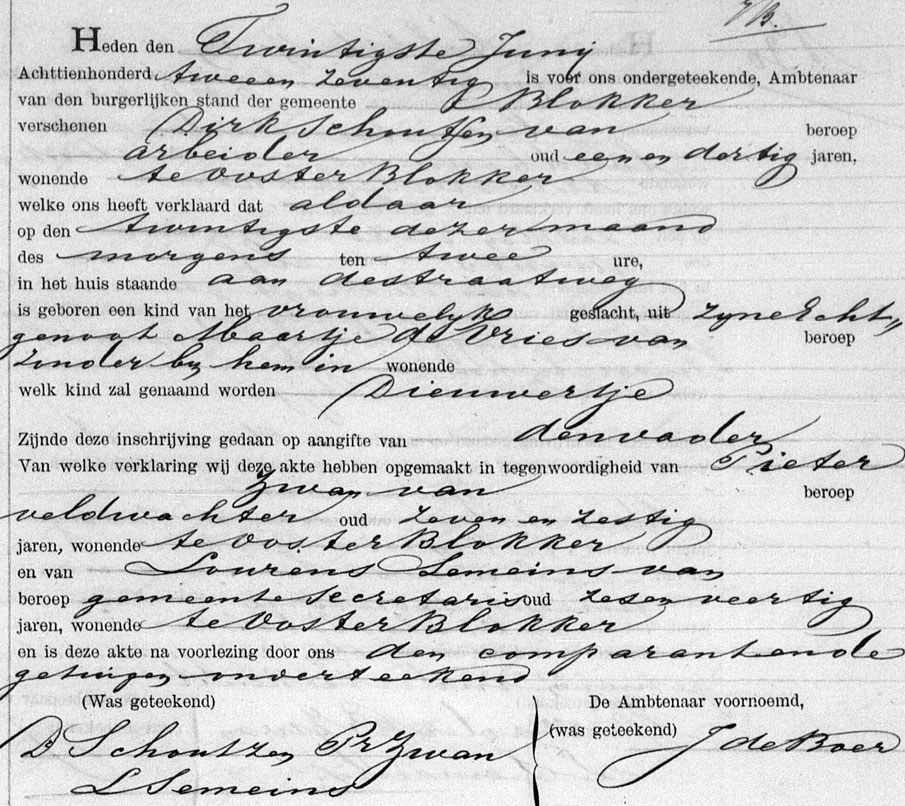 Heden den Twintigste Junij
Achttienhonderd tweeen zeventig is voor ons ondergeteekende, Ambtenaar
van den burgerlijken stand der gemeente Blokker
verschenen Dirk Schoutsen van beroep
arbeider oud een en dertig jaren,
wonende te Oosterblokker
welke ons heeft verklaard dat aldaar
op den twintigste dezer maand
des morgens ten twee ure,
in het huis staande aan de straatweg
is geboren een kind van het vrouwelyk geslacht, uit zyne Echt„
genoot Maartje de Vries van beroep
zonder by hem in wonende
welk kind zal genaamd worden Dieuwertje
Zijnde deze inschrijving gedaan op aangifte van den vader
Van welke verklaring wij deze akte hebben opgemaakt in tegenwoordigheid van Pieter
Zwan van beroep
veldwachter oud zeven en zestig
jaren, wonende te Oosterblokker
en van Lourens Semeins van
beroep gemeente Secretaris oud zesen veertig
jaren, wonende te Oosterblokker
en is deze akte na voorlezing door ons den comparant en de
getuigen onderteekend
(Was geteekend) De Ambtenaar voornoemd,
D Schoutzen Pr Zwan (was geteekend) J de Boer
L Semeins